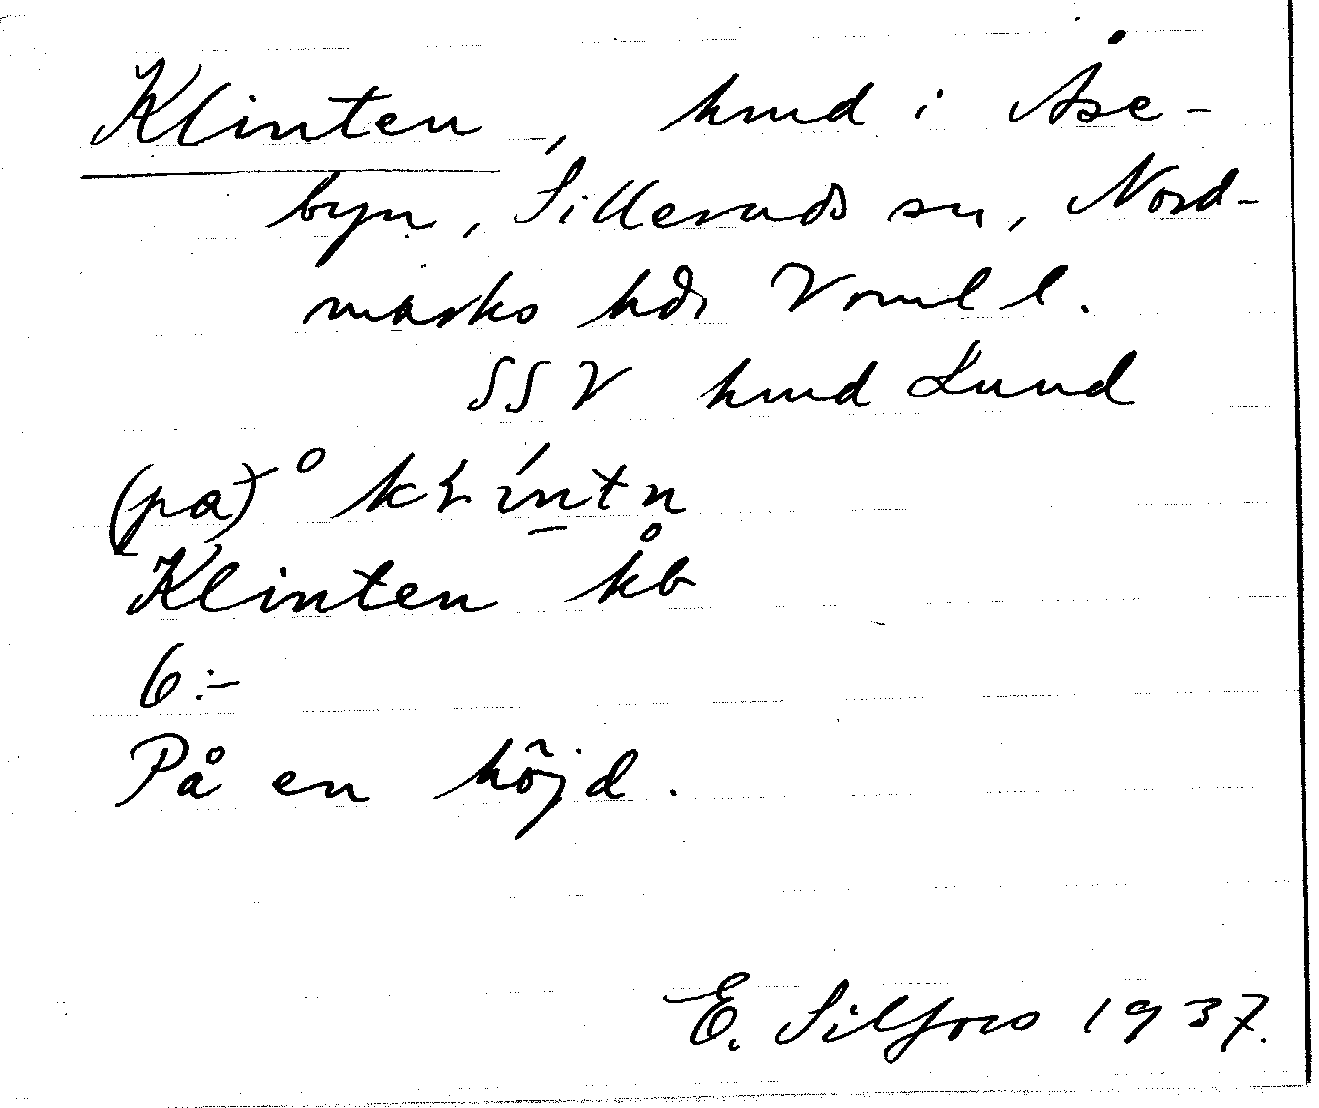 Klinten, hmd i Åse-
byn, Silleruds sn, Nord-
marks hdr Vrml l.
SSV hmd Lund
(på)
Klinten kb
6:-
På en höjd.
E. Silfors 1937.